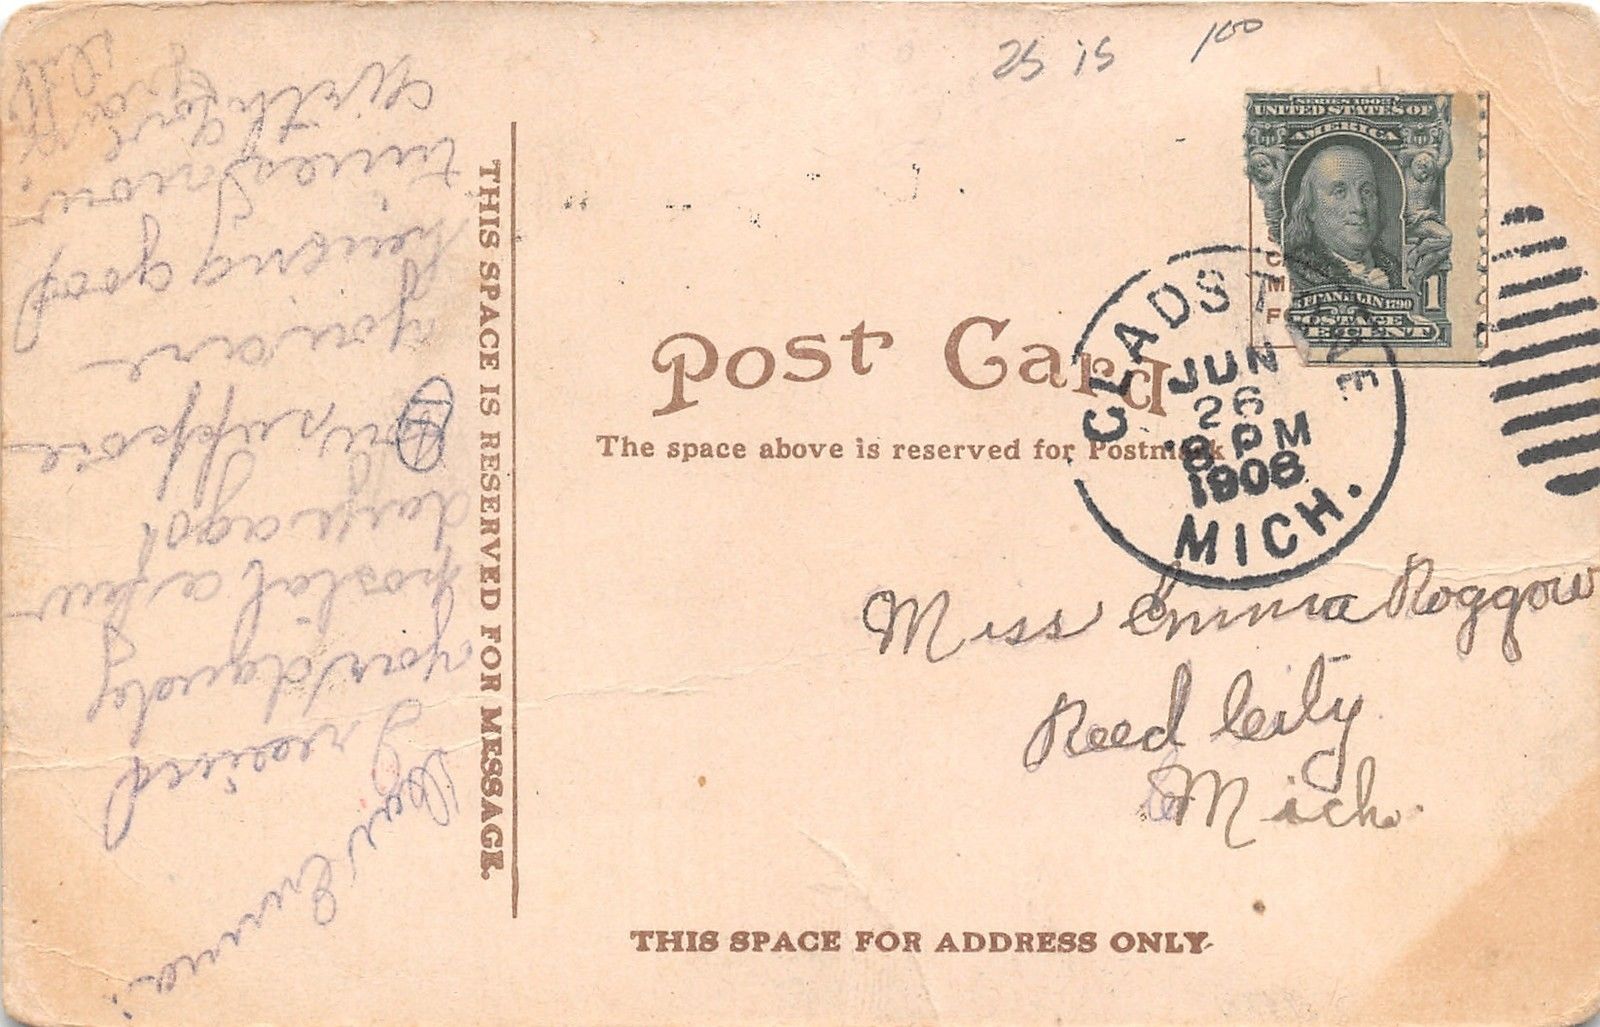 25 15 100
SERIES 1902
UNITED STATES OF
AMERICA
FRANKLIN 1790
POSTAGE
1 CENT
CLADSTONE
JUN
26
8 PM
1908
MICH.
Post Card
The space above is reserved for Postmark
Miss Emma Roggow
Reed City
Mich.
THIS SPACE FOR ADDRESS ONLY
THIS SPACE IS RESERVED FOR MESSAGE.
Dear Emma.
I received
your dandy
postal a few
days ago!
suppose
you are
having good
times now.
With love